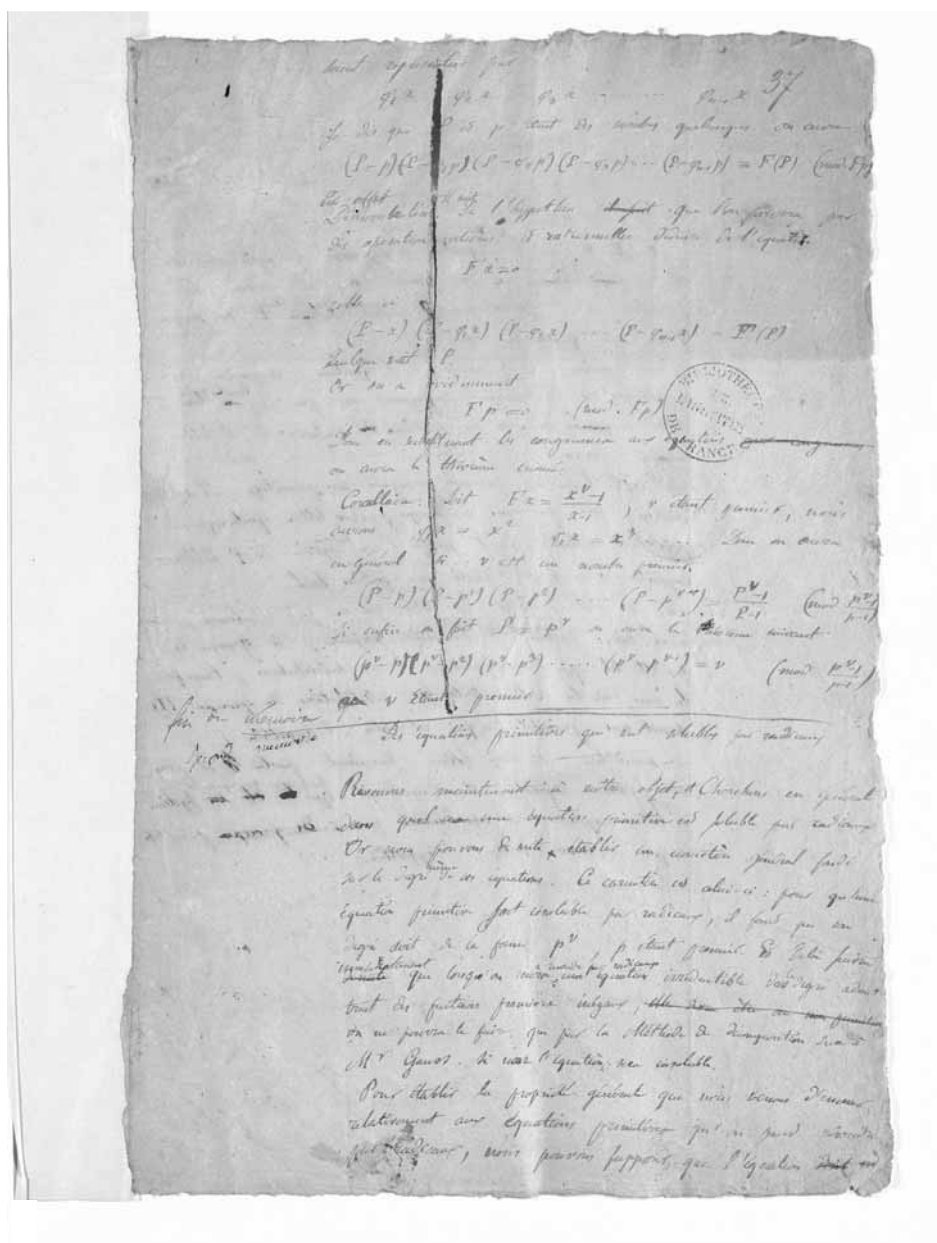 37
seront représentées par
φ₁x φ₂x φ₃x ........ φₘ₋₁x
Je dis que P et p étant des nombres quelconques, on aura
(P-p) (P-φ₁p) (P-φ₂p) (P-φ₃p) ... (P-φₘ₋₁p) = F(P) (mod Fp)
En effet
Démonstration de l'hypothèse que l'on pourra par
des opérations entières et rationnelles déduire de l'équation
Fx=0
celle-ci
(P-x) (P-φ₁x) (P-φ₂x) ..... (P-φₘ₋₁x) = F(P)
quelque soit P.
Or on a évidemment
Fp = 0 (mod. Fp)
Donc en substituant les congruences aux équations
on aura le théorème énoncé.
Corollaire. Soit Fx = xᵛ-1/x-1, v étant premier, nous
aurons φ₁x = x² φ₂x = x³ ..... Donc on aura
en général si v est un nombre premier.
(P-p) (P-p²) (P-p³) ..... (P-pᵛ⁻¹) = Pᵛ-1/P-1 (mod pᵛ-1/p-1)
Si enfin on fait P = pᵛ on aura le théorème suivant
(pᵛ-p) (pᵛ-p²) (pᵛ-p³) ...... (pᵛ-pᵛ⁻¹) = v (mod pᵛ-1/p-1)
v étant premier
fin du mémoire
Des équations primitives qui sont solubles par radicaux
Revenons maintenant à notre objet, et cherchons en général
dans quel une équation primitive est soluble par radicaux
Or nous pouvons de suite établir un caractère général fondé
sur le degré même de ces équations. Ce caractère est celui-ci : pour qu'une
équation primitive soit résoluble par radicaux, il faut que son
degré soit de la forme pᵛ, p étant premier. Et de là suivra
immédiatement que lorsqu'on aura à résoudre par radicaux une équation irréductible dont le degré admet-
trait des facteurs premiers inégaux,
on ne pourra le faire que par la Méthode de décomposition due à
Mʳ Gauss. Si non l'équation sera insoluble.
Pour établir la propriété générale que nous venons d'énoncer
relativement aux équations primitives qu'on peut résoudre
par radicaux, nous pouvons supposer que l'équation
BIBLIOTHÈQUE
DE
L'INSTITUT
DE FRANCE